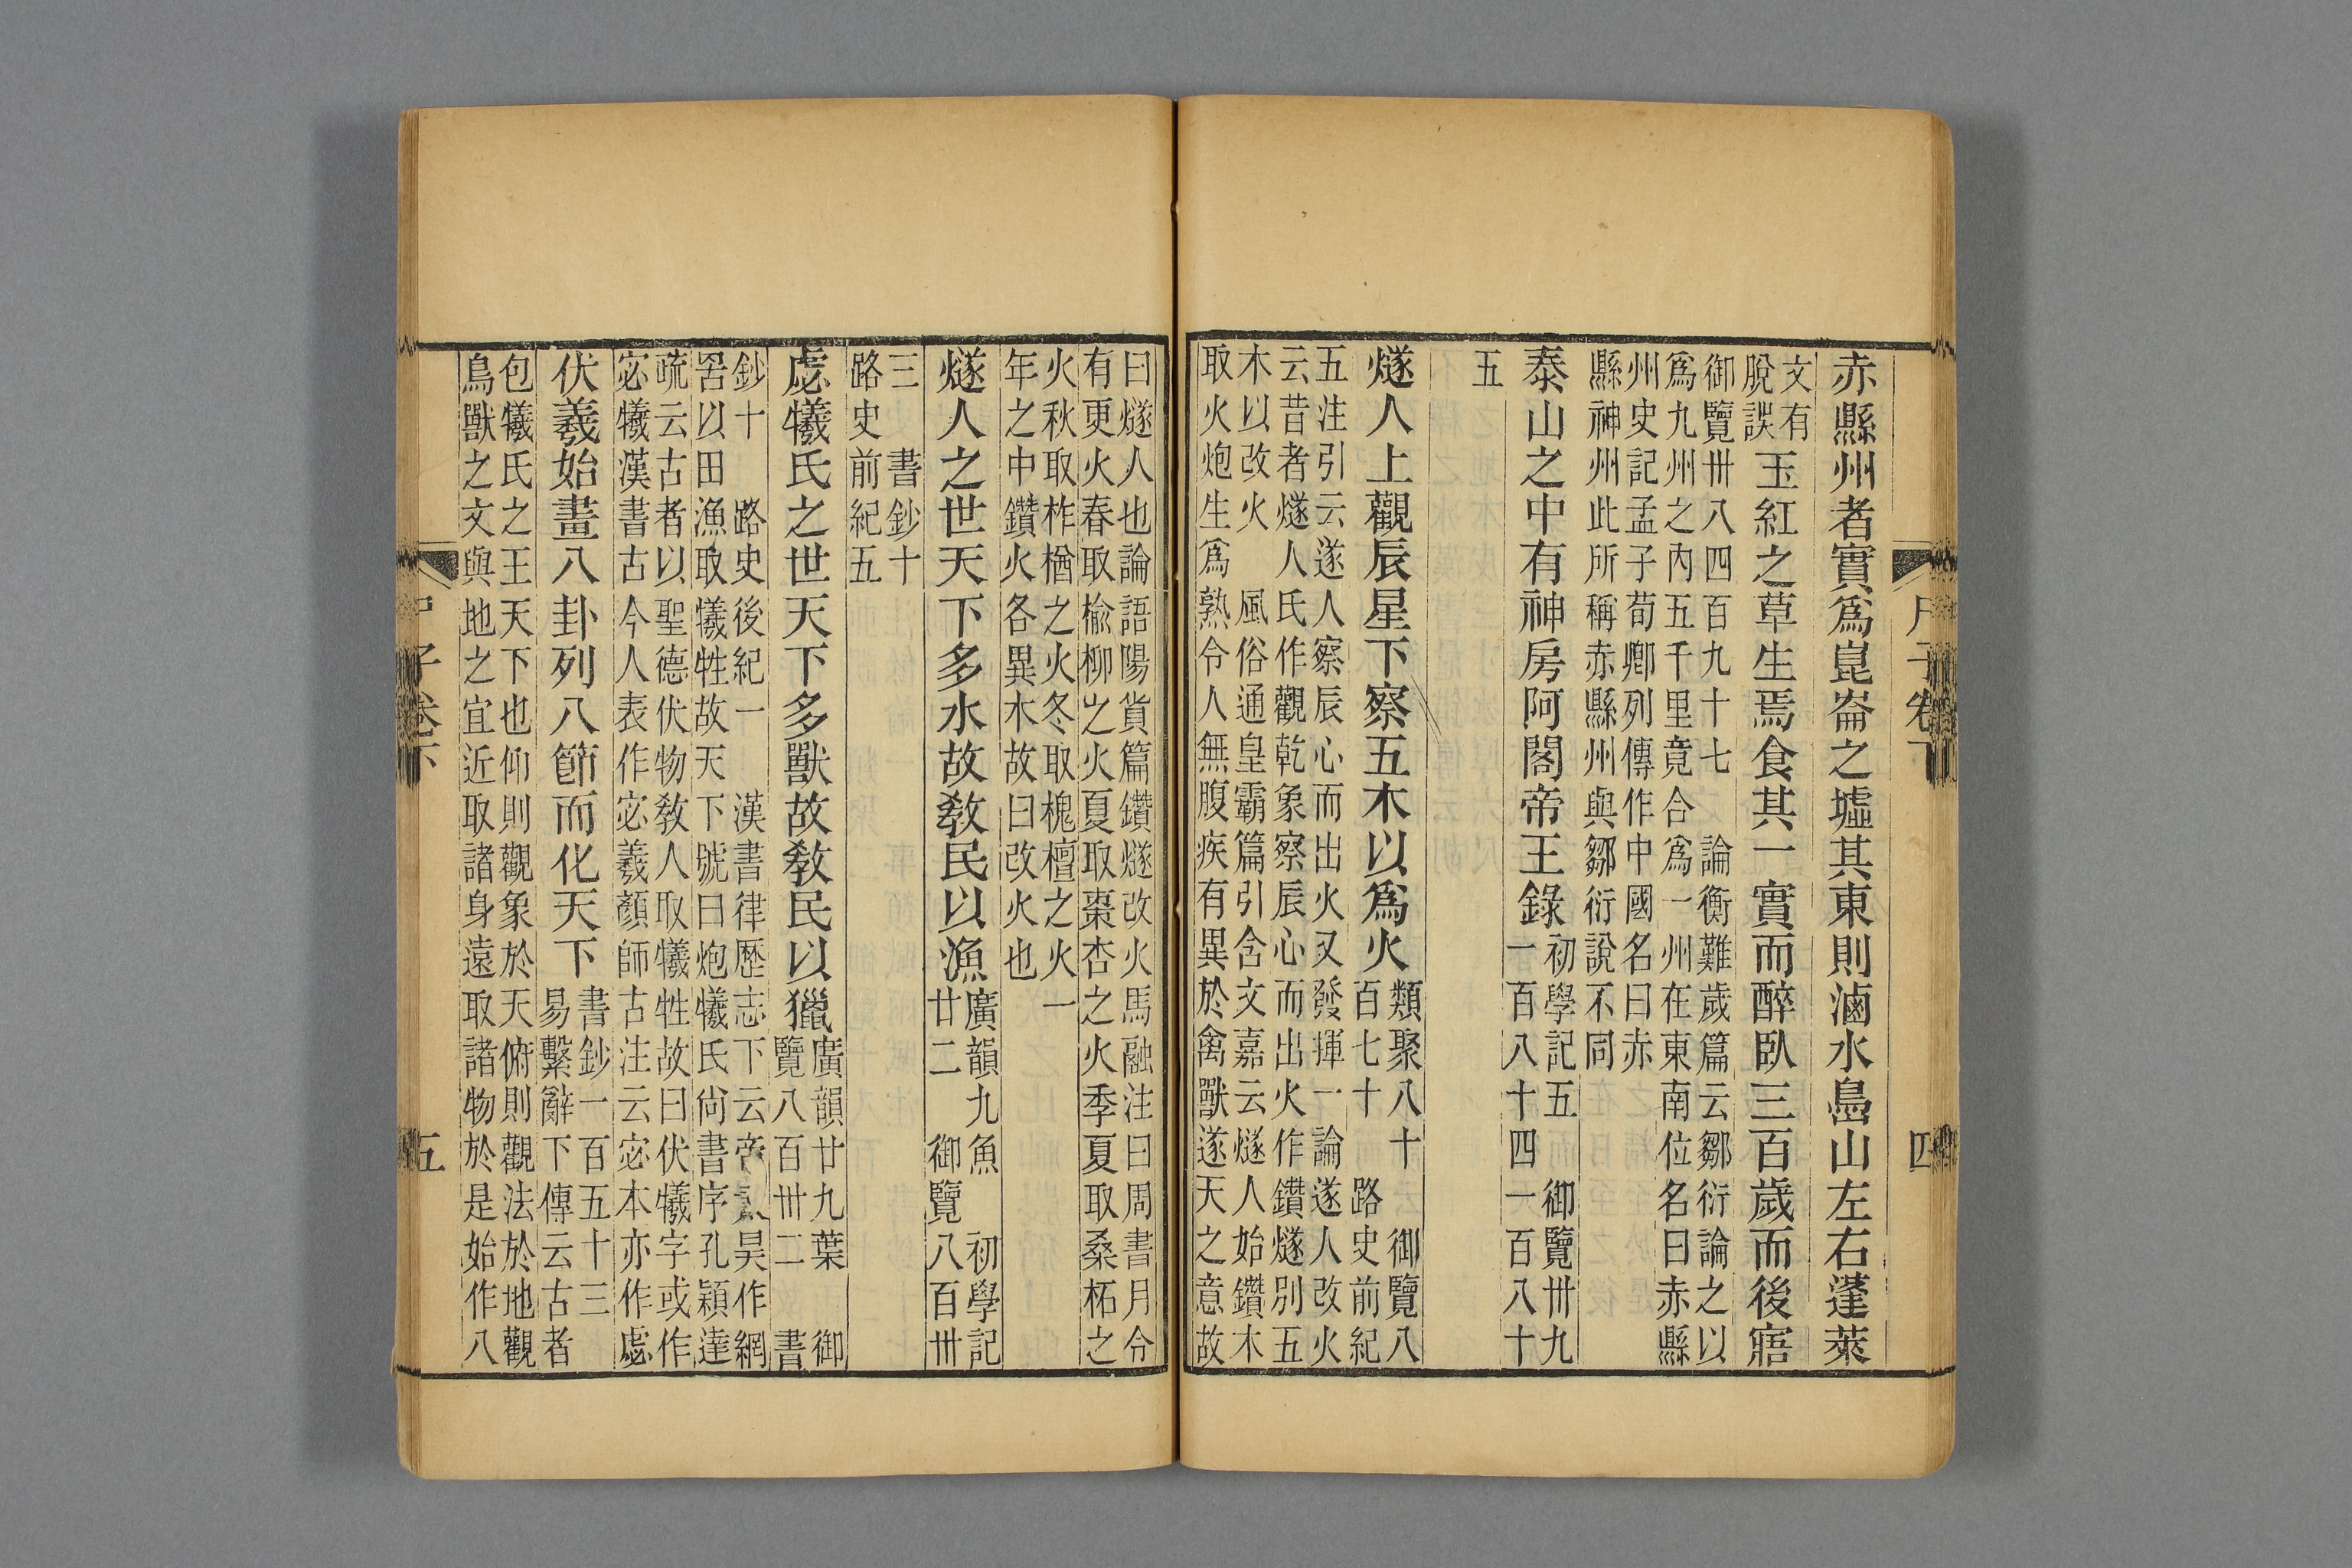 尸子卷下
四
赤縣州者實爲崑崙之墟其東則滷水島山左右蓬萊
文有
脫誤
玉紅之草生焉食其一實而醉臥三百歲而後寤
御覽卅八四百九十七　論衡難歲篇云鄒衍論之以
爲九州之內五千里竟合爲一州在東南位名曰赤縣
州史記孟子荀卿列傳作中國名曰赤
縣神州此所稱赤縣州與鄒衍說不同
泰山之中有神房阿閣帝王錄
初學記五　御覽卅九
一百八十四　一百八十
五
燧人上觀辰星下察五木以爲火
類聚八十　御覽八
百七十　路史前紀
五注引云遂人察辰心而出火又發揮一論遂人改火
云昔者燧人氏作觀乾象察辰心而出火作鑽燧別五
木以改火　風俗通皇霸篇引含文嘉云燧人始鑽木
取火炮生爲熟令人無腹疾有異於禽獸遂天之意故
曰燧人也論語陽貨篇鑽燧改火馬融注曰周書月令
有更火春取榆柳之火夏取棗杏之火季夏取桑柘之
火秋取柞楢之火冬取槐檀之火一
年之中鑽火各異木故曰改火也
燧人之世天下多水故教民以漁
廣韻九魚　初學記
廿二　御覽八百卅
三　書鈔十
路史前紀五
虙犧氏之世天下多獸故教民以獵
廣韻廿九葉　御
覽八百卅二　書
鈔十　路史後紀一　漢書律歷志下云帝昊作網
罟以田漁取犧牲故天下號曰炮犧氏尙書序孔穎達
疏云古者以聖德伏物教人取犧牲故曰伏犧字或作
宓犧漢書古今人表作宓羲顏師古注云宓本亦作虙
伏羲始畫八卦列八節而化天下
書鈔一百五十三
易繫辭下傳云古者
包犧氏之王天下也仰則觀象於天俯則觀法於地觀
鳥獸之文與地之宜近取諸身遠取諸物於是始作八
尸子卷下
五